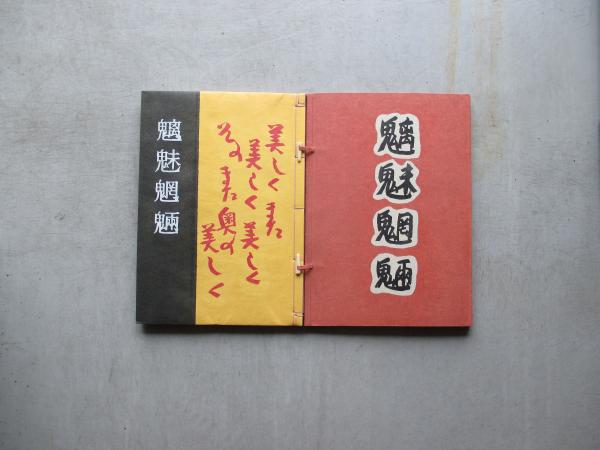 魑魅魍魎
美しくまた
美しく美しく
そのまた奥の
美しく
魑魅魍魎